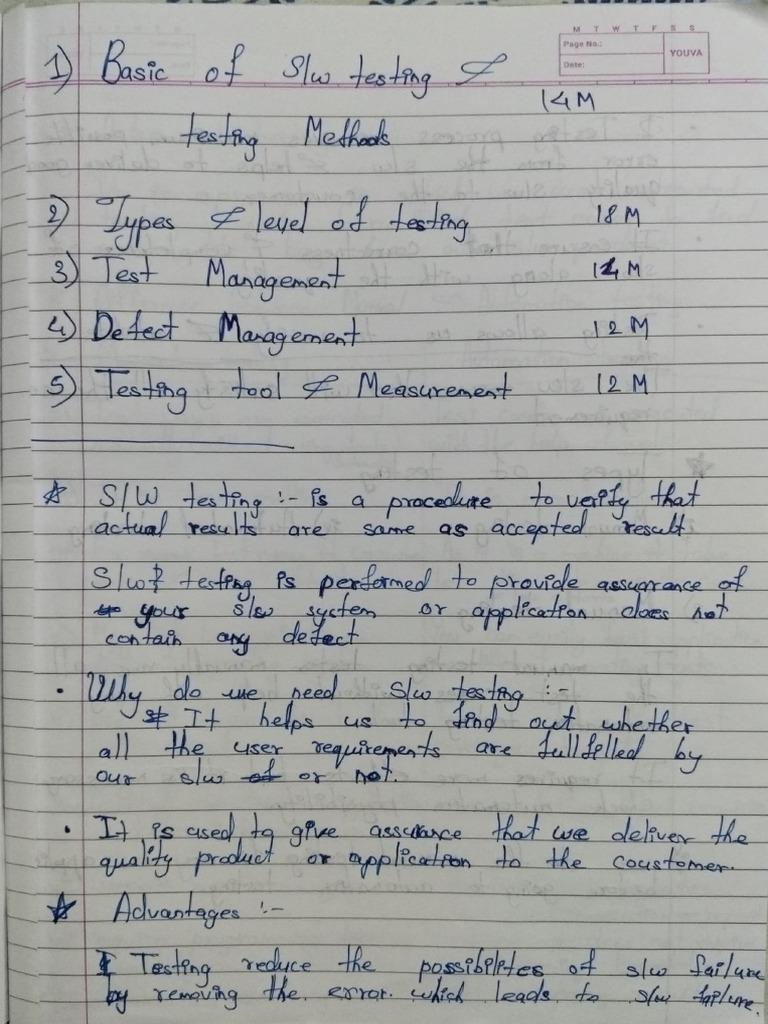 M T W T F S S
Page No.:
Date:
YOUVA
1) Basic of S/w testing &
14M
testing Methods
2) Types & level of testing 18M
3) Test Management 14M
4) Defect Management 12M
5) Testing tool & Measurement 12M
☆ S/W testing :- is a procedure to verify that
actual results are same as accepted result
S/w testing is performed to provide assuarance of
your s/w system or application does not
contain any defect
• Why do we need s/w testing :-
It helps us to find out whether
all the user requirements are fullfelled by
our s/w or not.
• It is used to give assurance that we deliver the
quality product or application to the coustomer.
☆ Advantages :-
Testing reduce the possibilites of s/w failure
by removing the error. which leads to s/w failure.